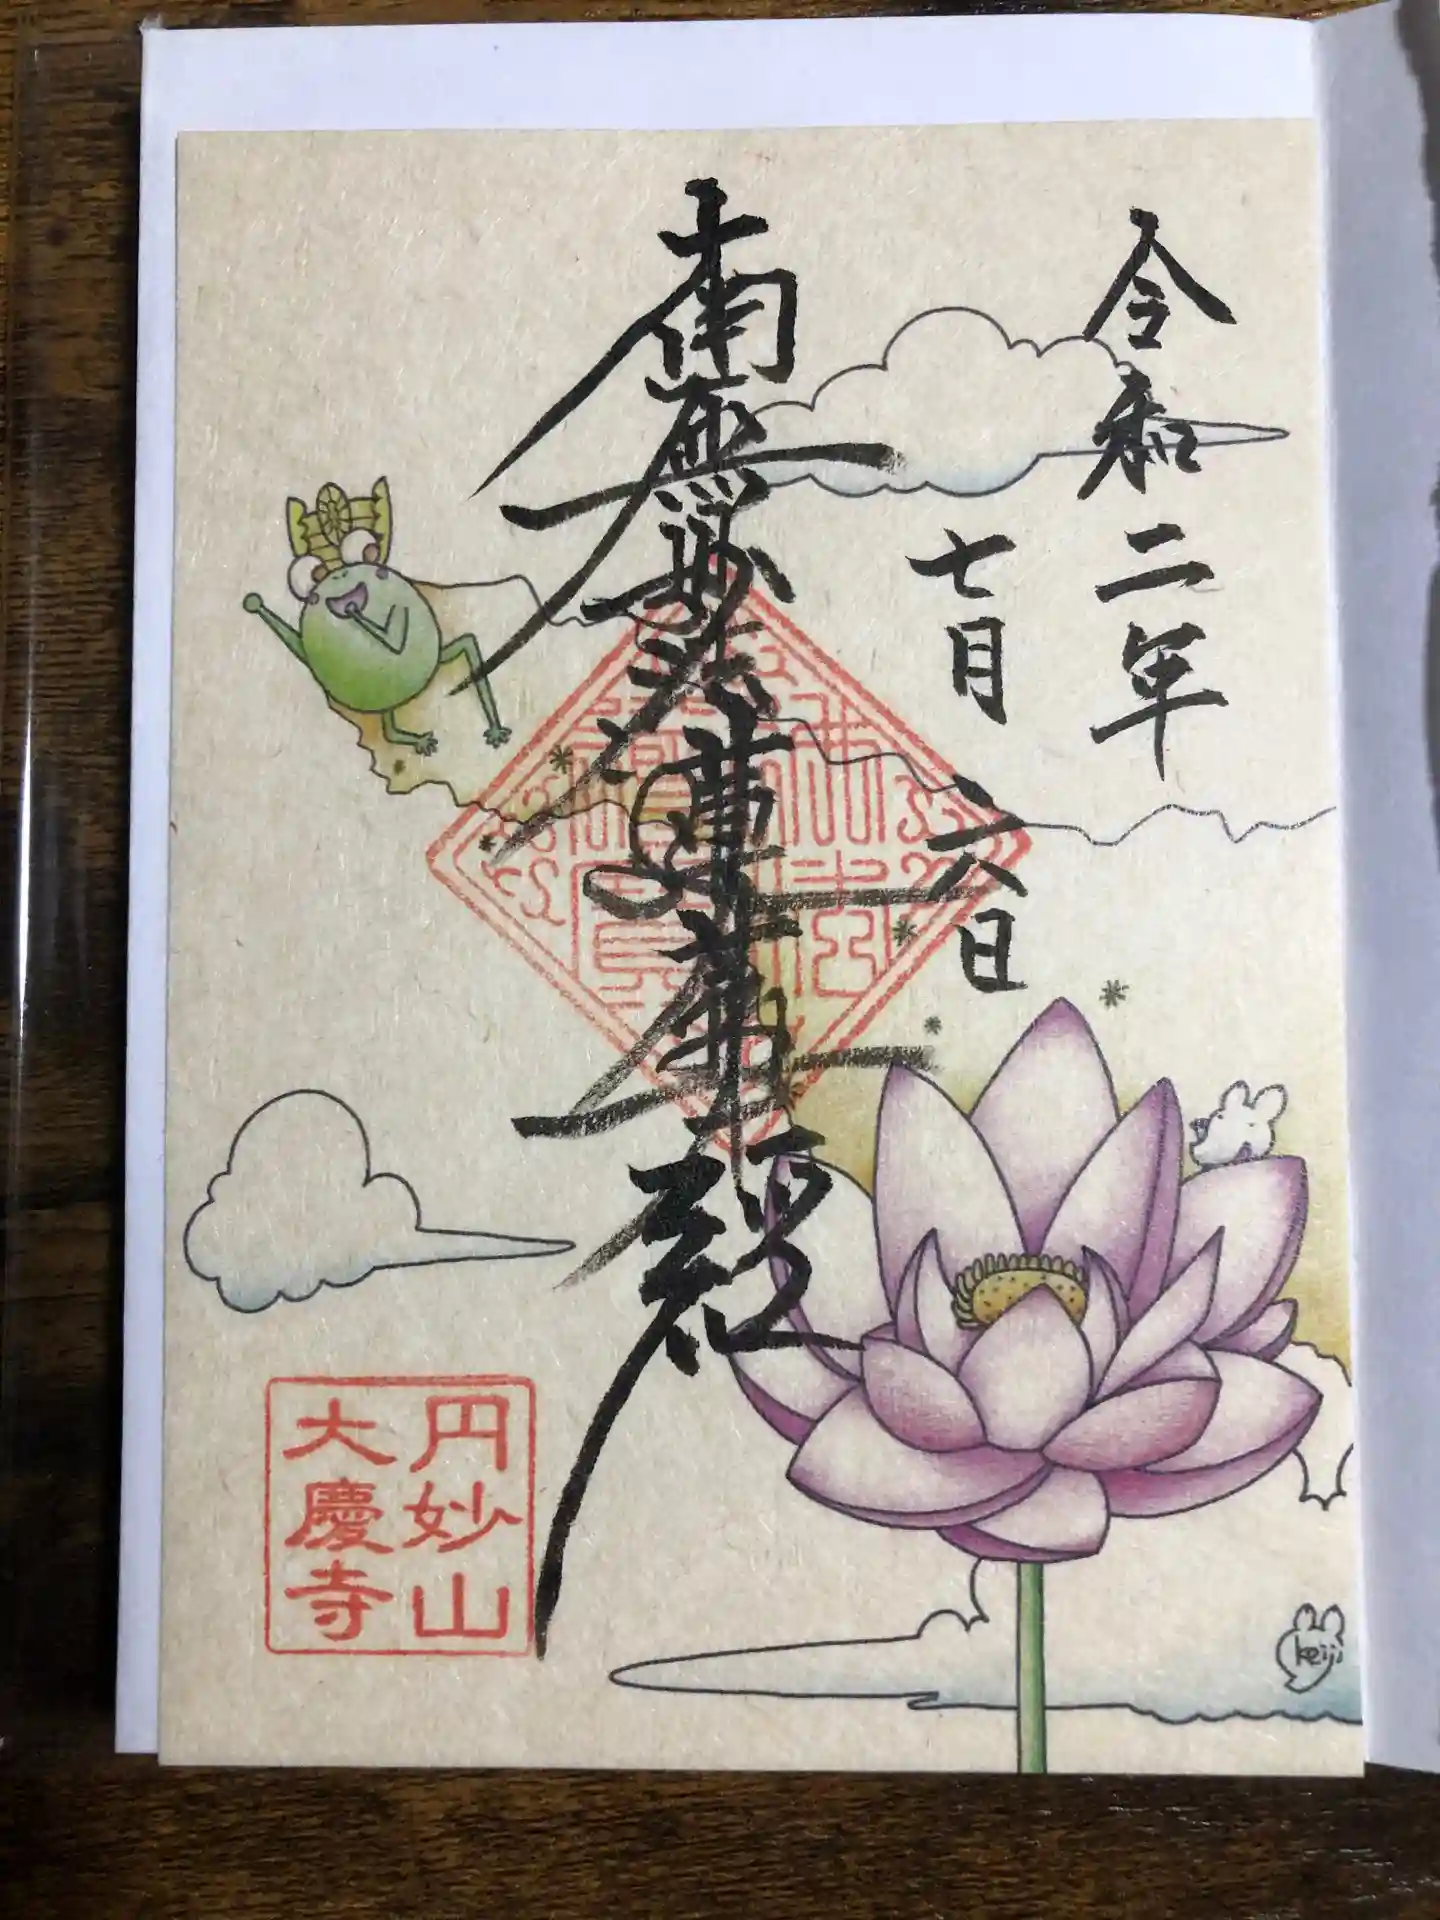 令和二年
七月六日
南無妙法蓮華経
円妙山
大慶寺
keiji